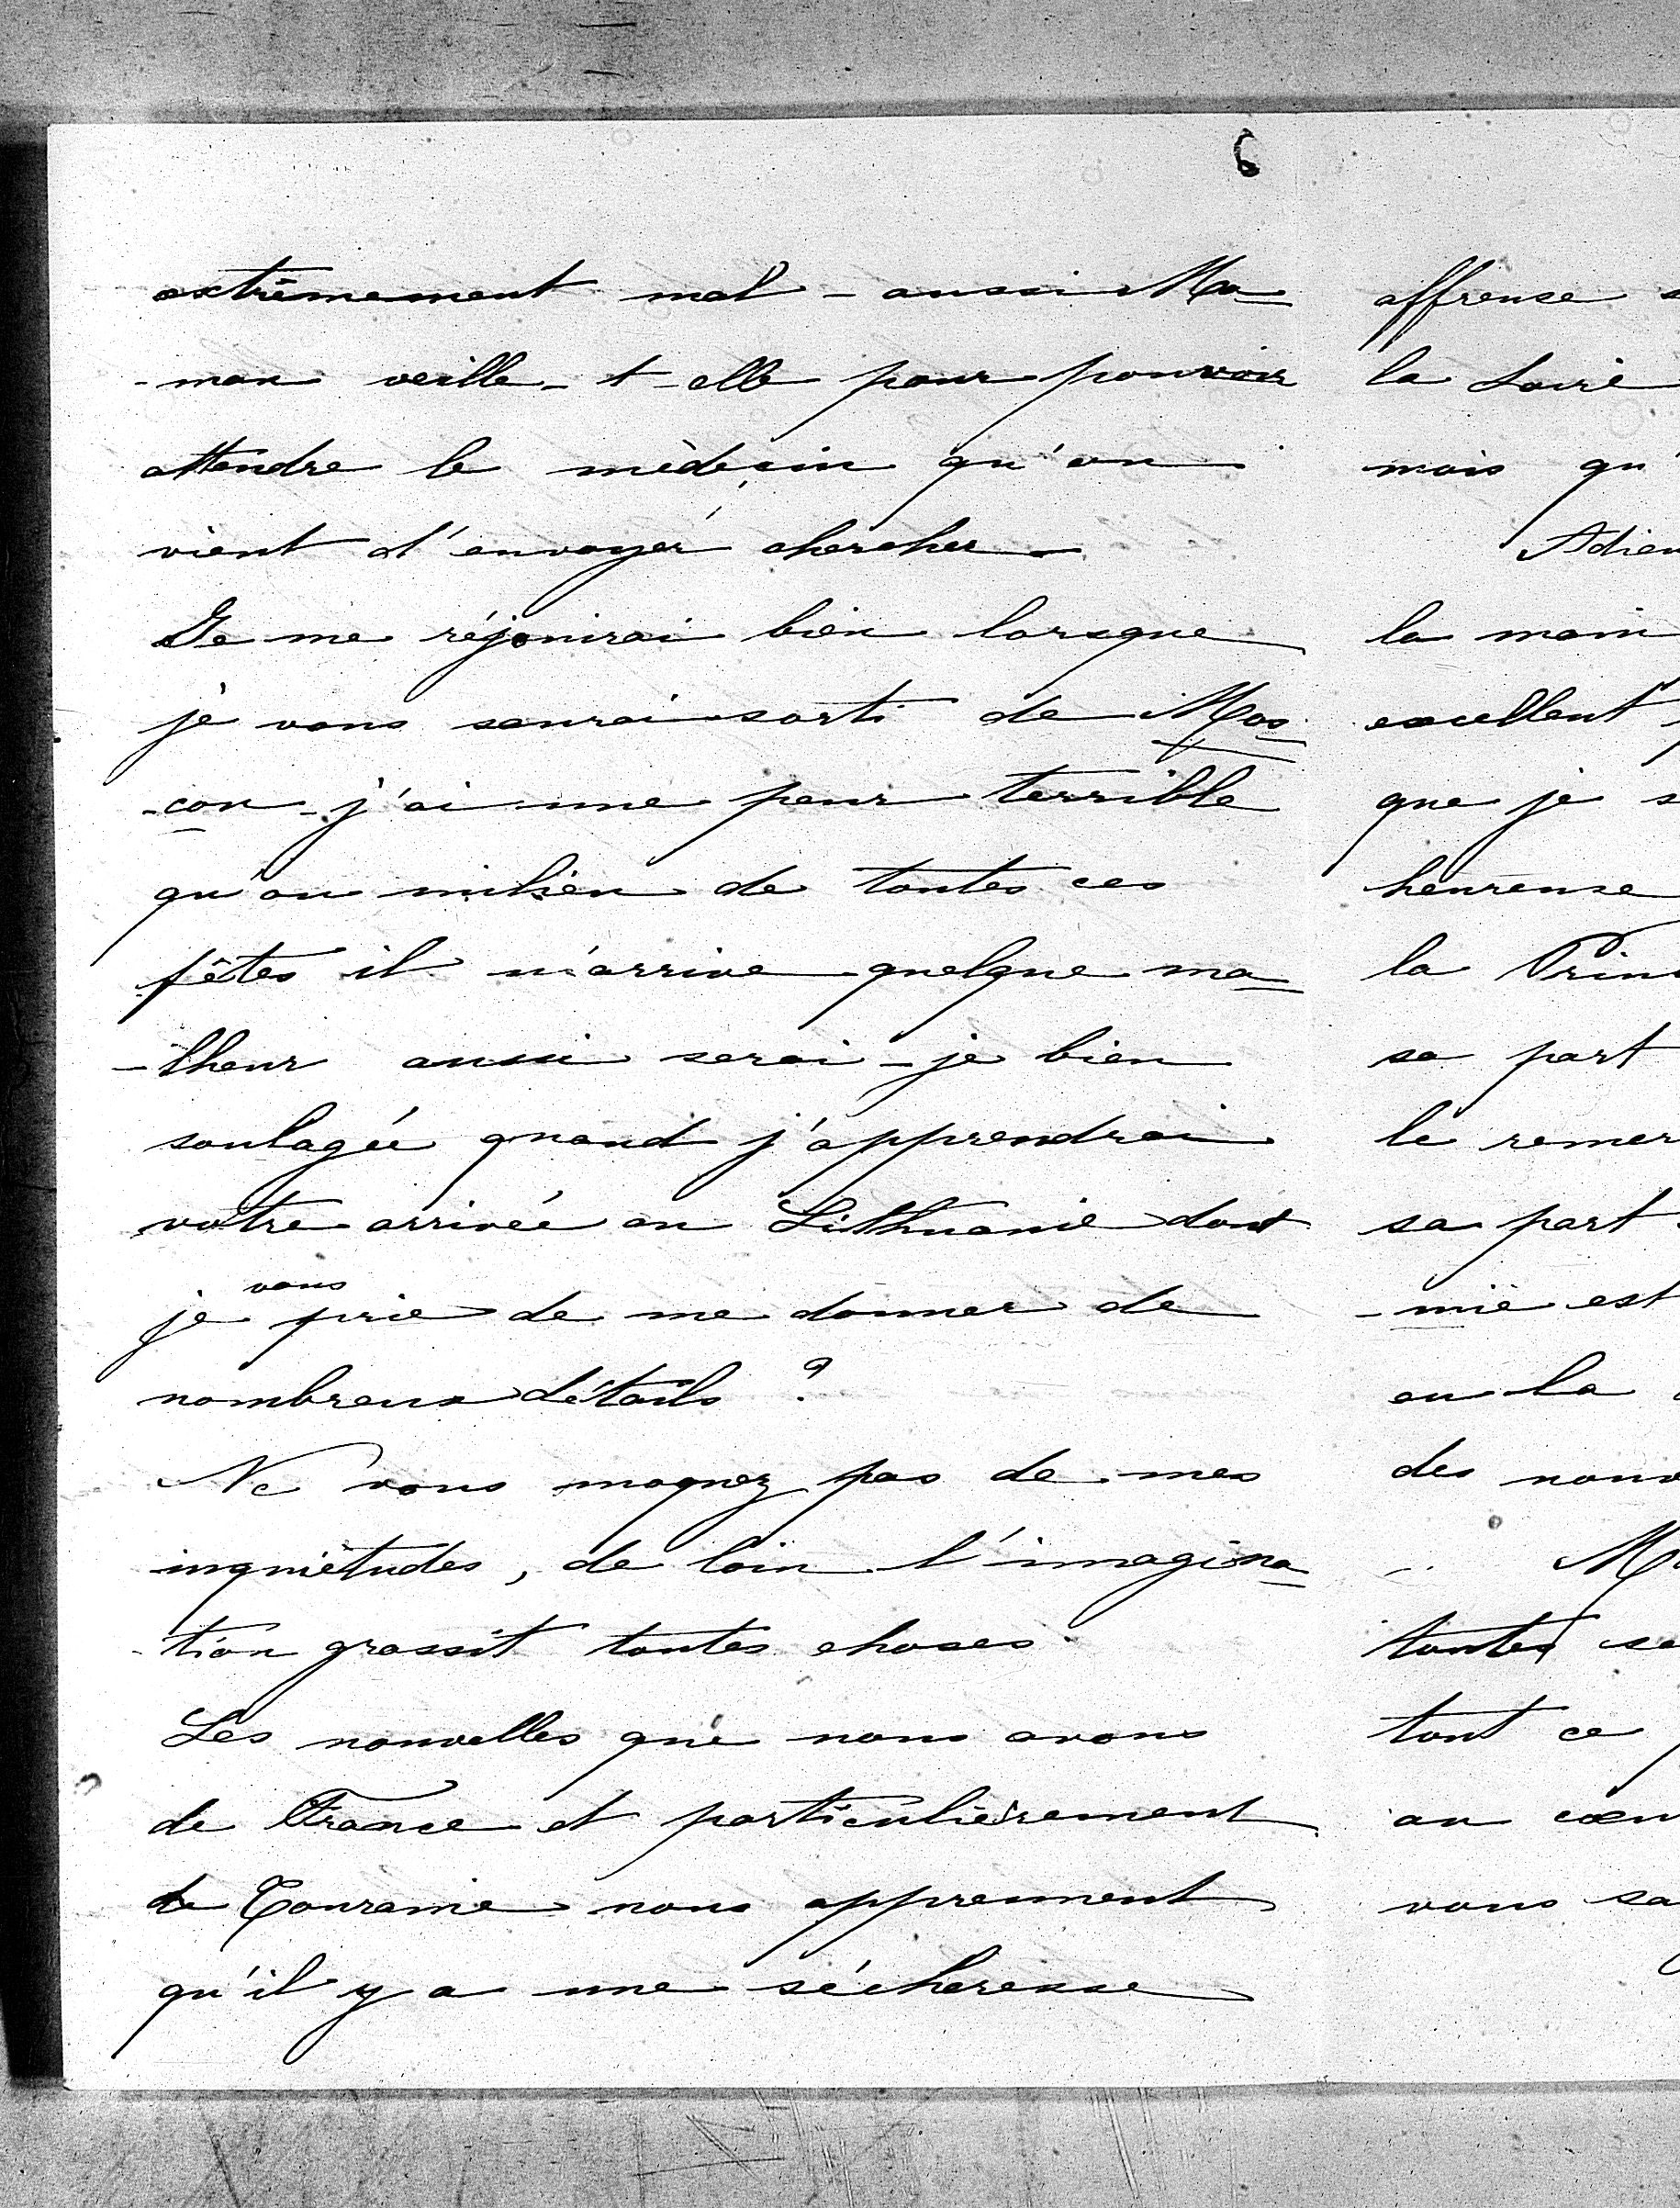 6
extrêmement mal - aussi Ma-
-man veille-t-elle pour pouvoir
attendre le médecin qu'on
vient d'envoyer chercher -
Je me réjouirai bien lorsque
je vous saurai sorti de Mos-
-cou - j'ai une peur terrible
qu'au milieu de toutes ces
fêtes il n'arrive quelque ma-
-lheur aussi serai-je bien
soulagée quand j'apprendrai
votre arrivée en Lithuanie dont
je vous prie de me donner de
nombreux détails ?
Ne vous moquez pas de mes
inquiétudes, de loin l'imagina-
-tion grossit toutes choses.
Les nouvelles que nous avons
de France et particulièrement
de Touraine nous apprennent
qu'il y a une sécheresse
affreuse
la Loire
mais qu'
Adieu
la main
excellent
que je s
heureuse
la Prin
sa part
le remer
sa part
-mie est
ou la
des nouv
M
toutes se
tout ce
au cœu
vous sa